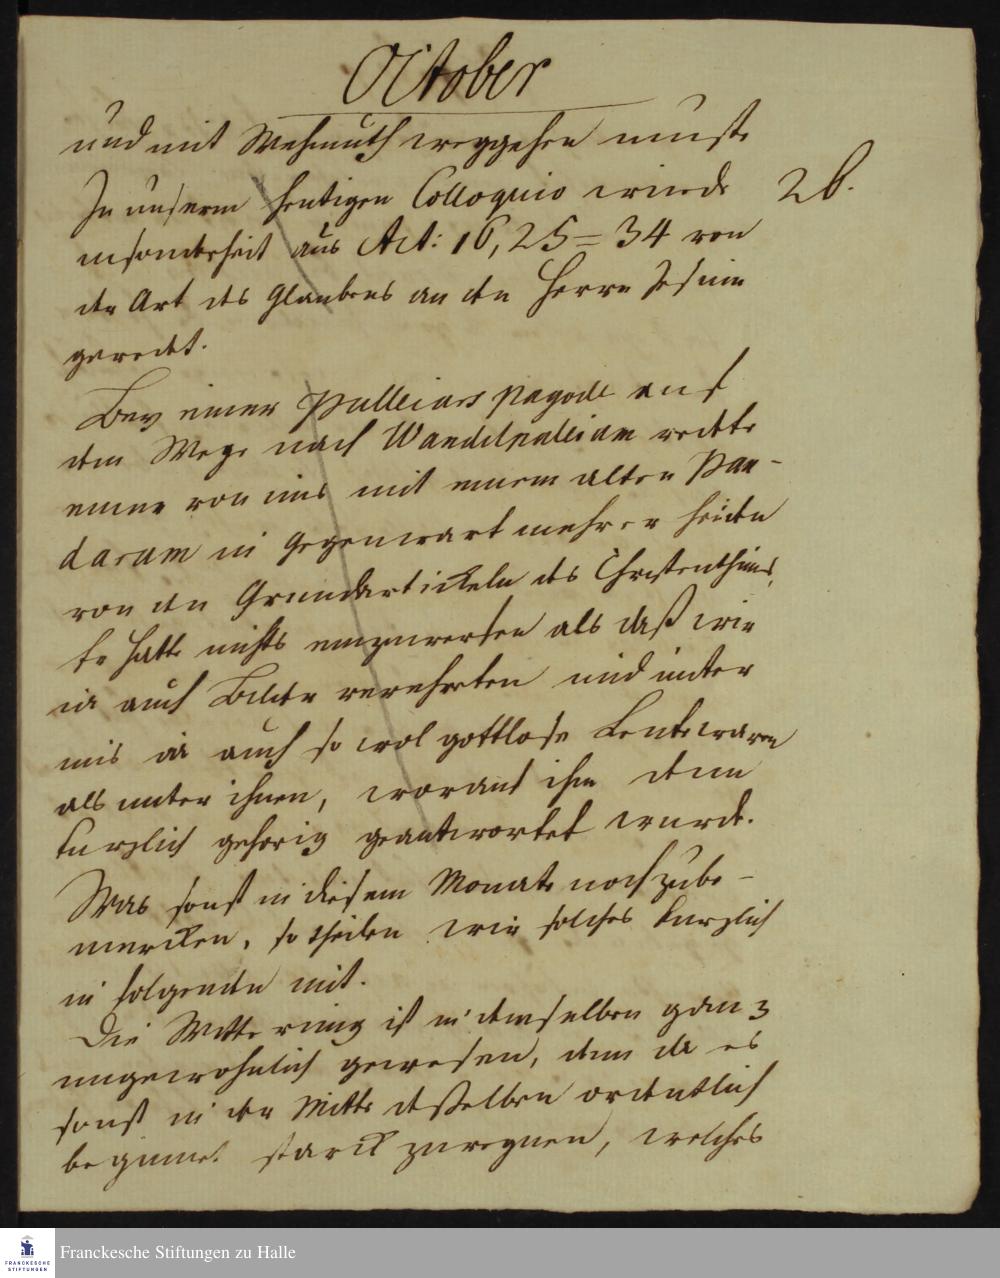 October
und mit Wehmuth weggehen muste
In unserm heutigen Colloquio wurde 28.
insonderheit aus Act: 16, 25 = 34 von
der Art des Glaubens an den Herrn Jesum
geredet.
Bey einer Pulleiars pagode auf
dem Wege nach Wandelpaleiam redete
einer von uns mit einem alten Pan-
daram in Gegenwart mehrer Heiden
von den Grundartickeln des Christenthums,
Er hatte nichts einzuwerfen als daß wir
ia auch Bilder verehreten und unter
uns ia auch so wol gottlose Leute waren
als unter ihnen, worauf ihm denn
kurzlich gehorig geantwortet wurde.
Was sonst in diesem Monate noch zube-
mercken, so theilen wir solches kurzlich
in folgenden mit.
Die Witterung ist in demselben ganz
ungewohnlich gewesen, denn da es
sonst in der Mitte deßelben ordentlich
beginnet starck zuregnen, welches
Franckesche Stiftungen zu Halle
FRANCKESCHE
STIFTUNGEN